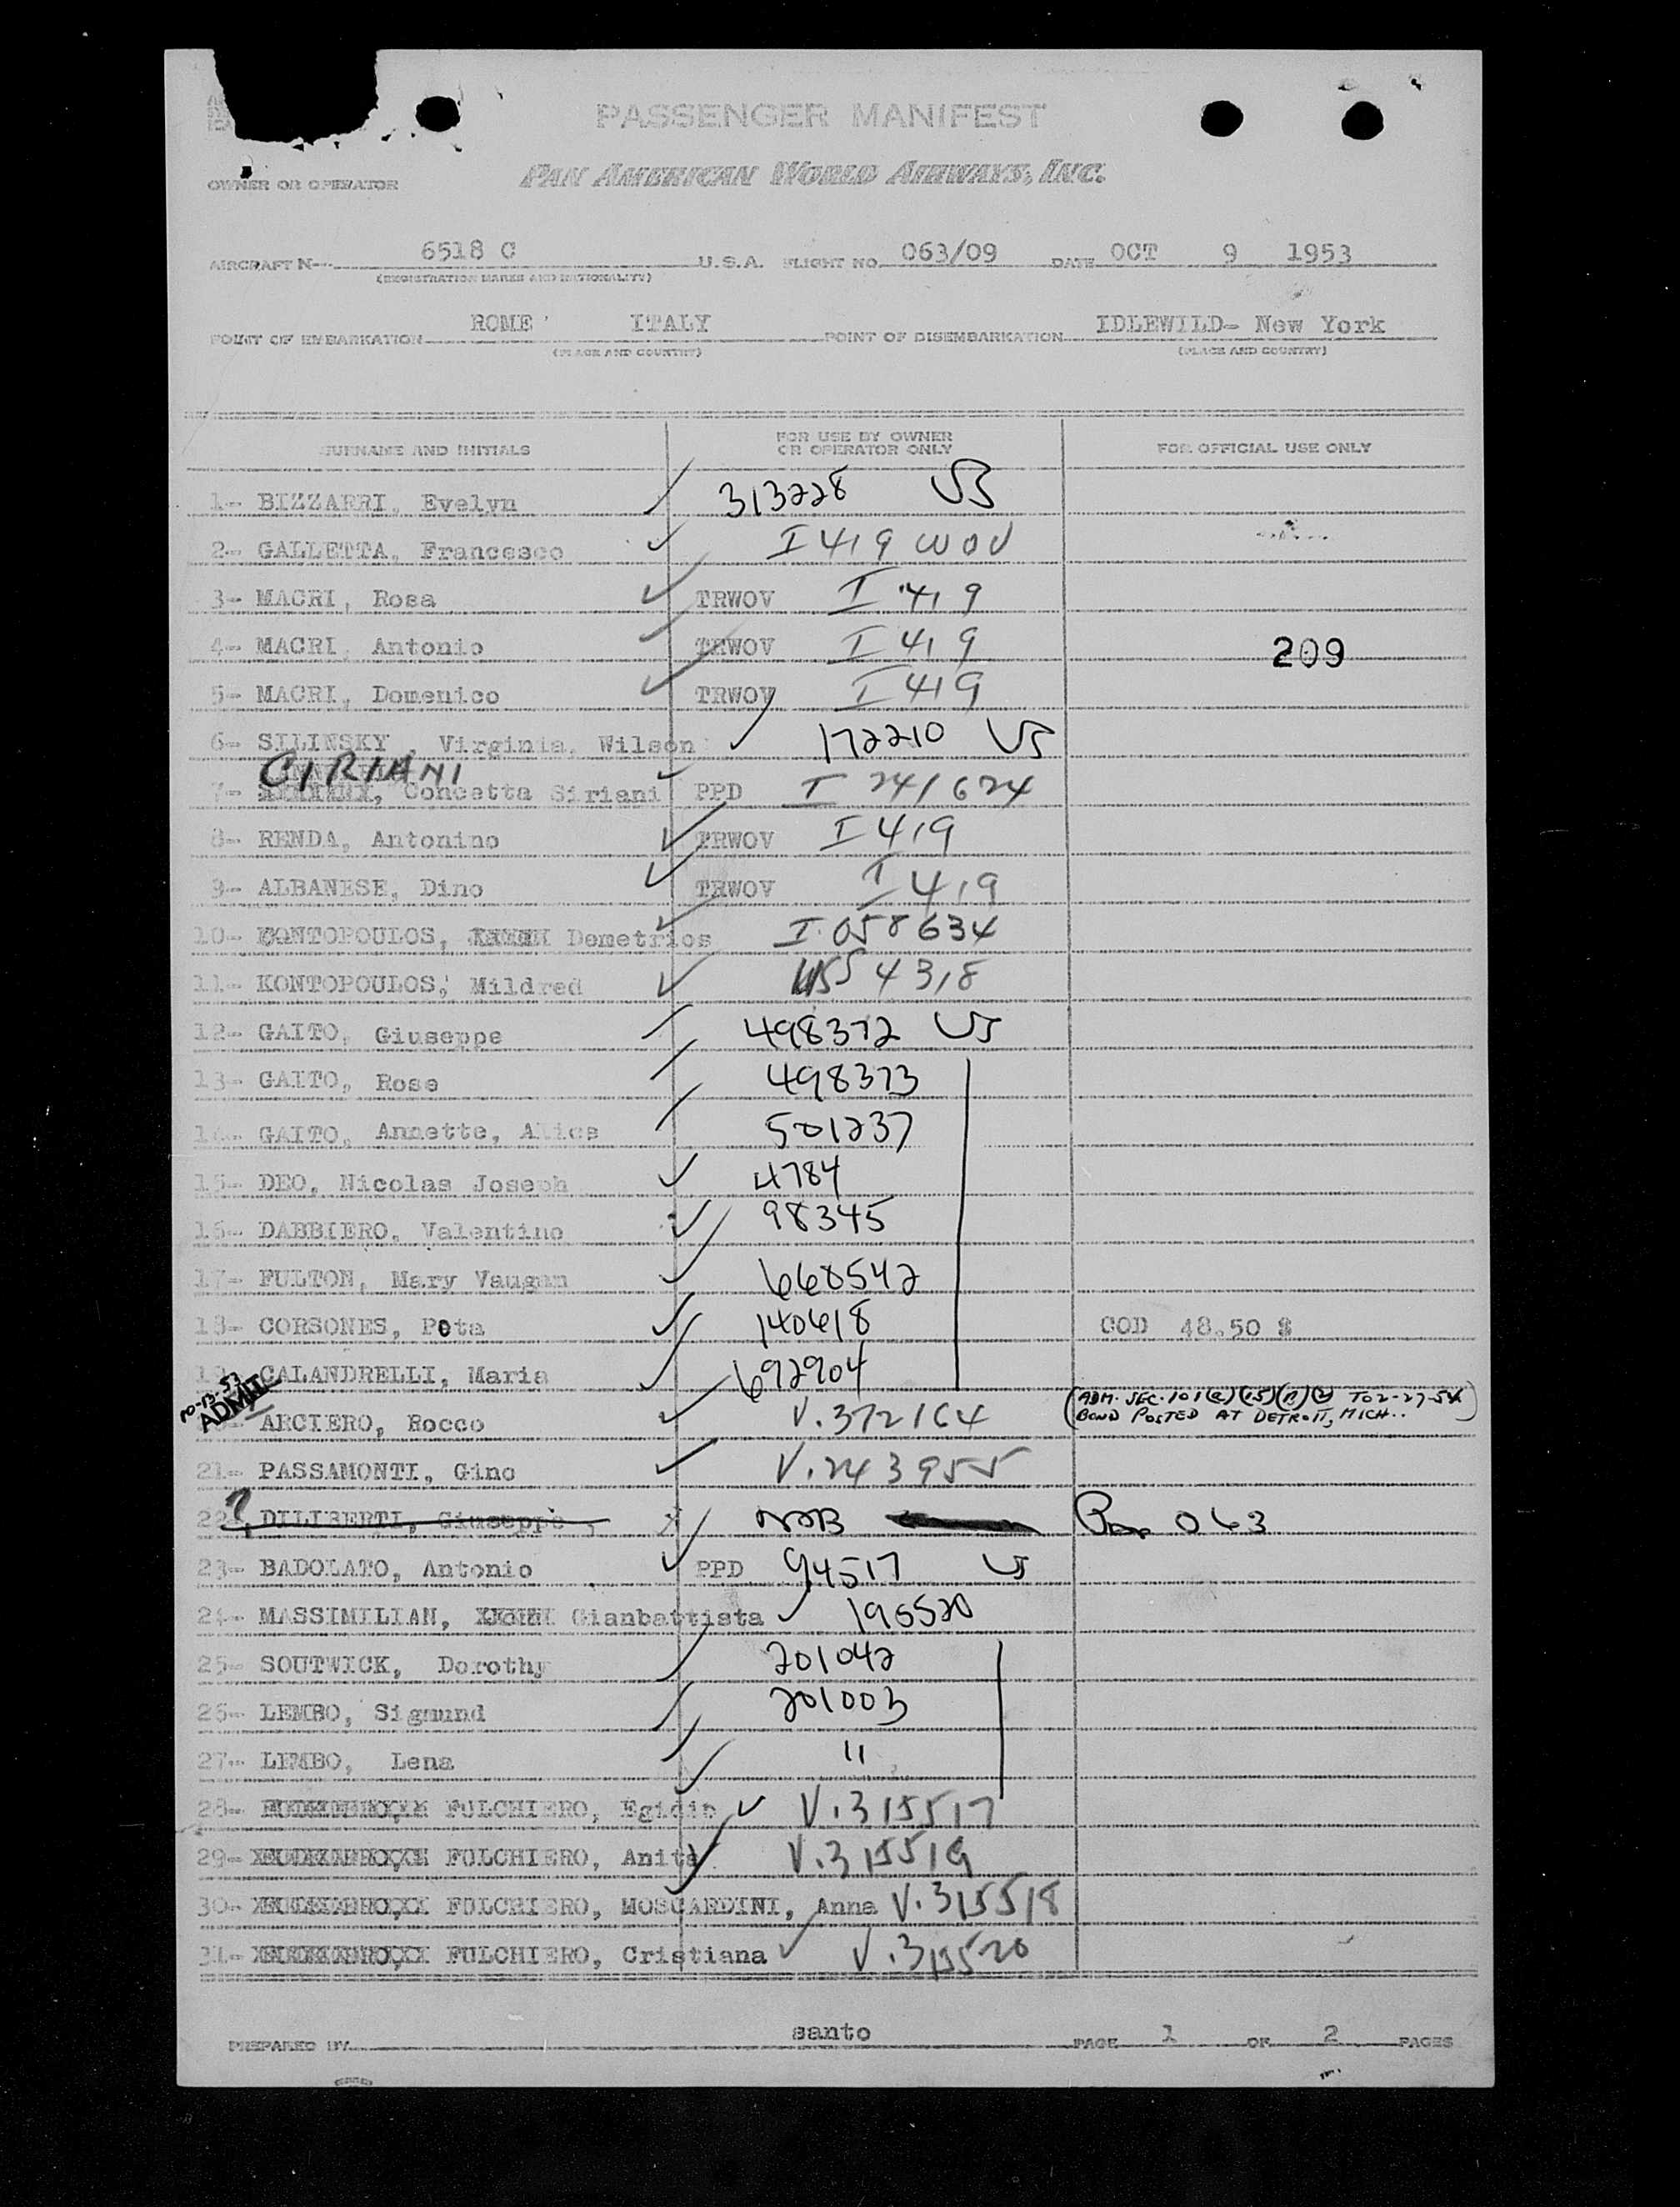 PASSENGER MANIFEST
OWNER OR OPERATOR PAN AMERICAN WORLD AIRWAYS, INC.
AIRCRAFT N 6518 C U.S.A. FLIGHT NO. 063/09 DATE OCT 9 1953
(REGISTRATION MARKS AND NATIONALITY)
POINT OF EMBARKATION ROME ITALY POINT OF DISEMBARKATION IDLEWILD- New York
(PLACE AND COUNTRY) (PLACE AND COUNTRY)
SURNAME AND INITIALS FOR USE BY OWNER OR OPERATOR ONLY FOR OFFICIAL USE ONLY
1- BIZZARRI, Evelyn 313228 US
2- GALLETTA, Francesco I 419 WOV
3- MACRI, Rosa TRWOV I 419
4- MACRI, Antonio TRWOV I 419 209
5- MACRI, Domenico TRWOV I 419
6- SILINSKY, Virginia, Wilson 172210 US
CIRIANI
7- Concetta Siriani PPD I 241624
8- RENDA, Antonino TRWOV I 419
9- ALBANESE, Dino TRWOV I 419
10- KONTOPOULOS, Demetrios I 058634
11- KONTOPOULOS, Mildred 4318
12- GAITO, Giuseppe 498372 US
13- GAITO, Rose 498373
14- GAITO, Annette, Alice 501237
15- DEO, Nicolas Joseph 4784
16- DABBIERO, Valentino 98345
17- FULTON, Mary Vaugan 668542
18- CORSONES, Pota 140618 COD 48.50 $
19- CALANDRELLI, Maria 692904
10-13-53 ADMIT
20- ARCIERO, Rocco V.372164 (ADM. SEC. 101(a)(15)(A)(2) TO 2-27-54 BOND POSTED AT DETROIT, MICH..)
21- PASSAMONTI, Gino V.243955
22- ? DILIBERTI, Giuseppe NOB 063
23- BADOLATO, Antonio PPD 94517 US
24- MASSIMILIAN, Gianbattista 195520
25- SOUTWICK, Dorothy 201042
26- LEMBO, Sigmund 201003
27- LEMBO, Lena "
28- FULCHIERO, Egidio V.315517
29- FULCHIERO, Anita V.315519
30- FULCHIERO, MOSCARDINI, Anna V.315518
31- FULCHIERO, Cristiana V.315520
PREPARED BY santo PAGE 1 OF 2 PAGES